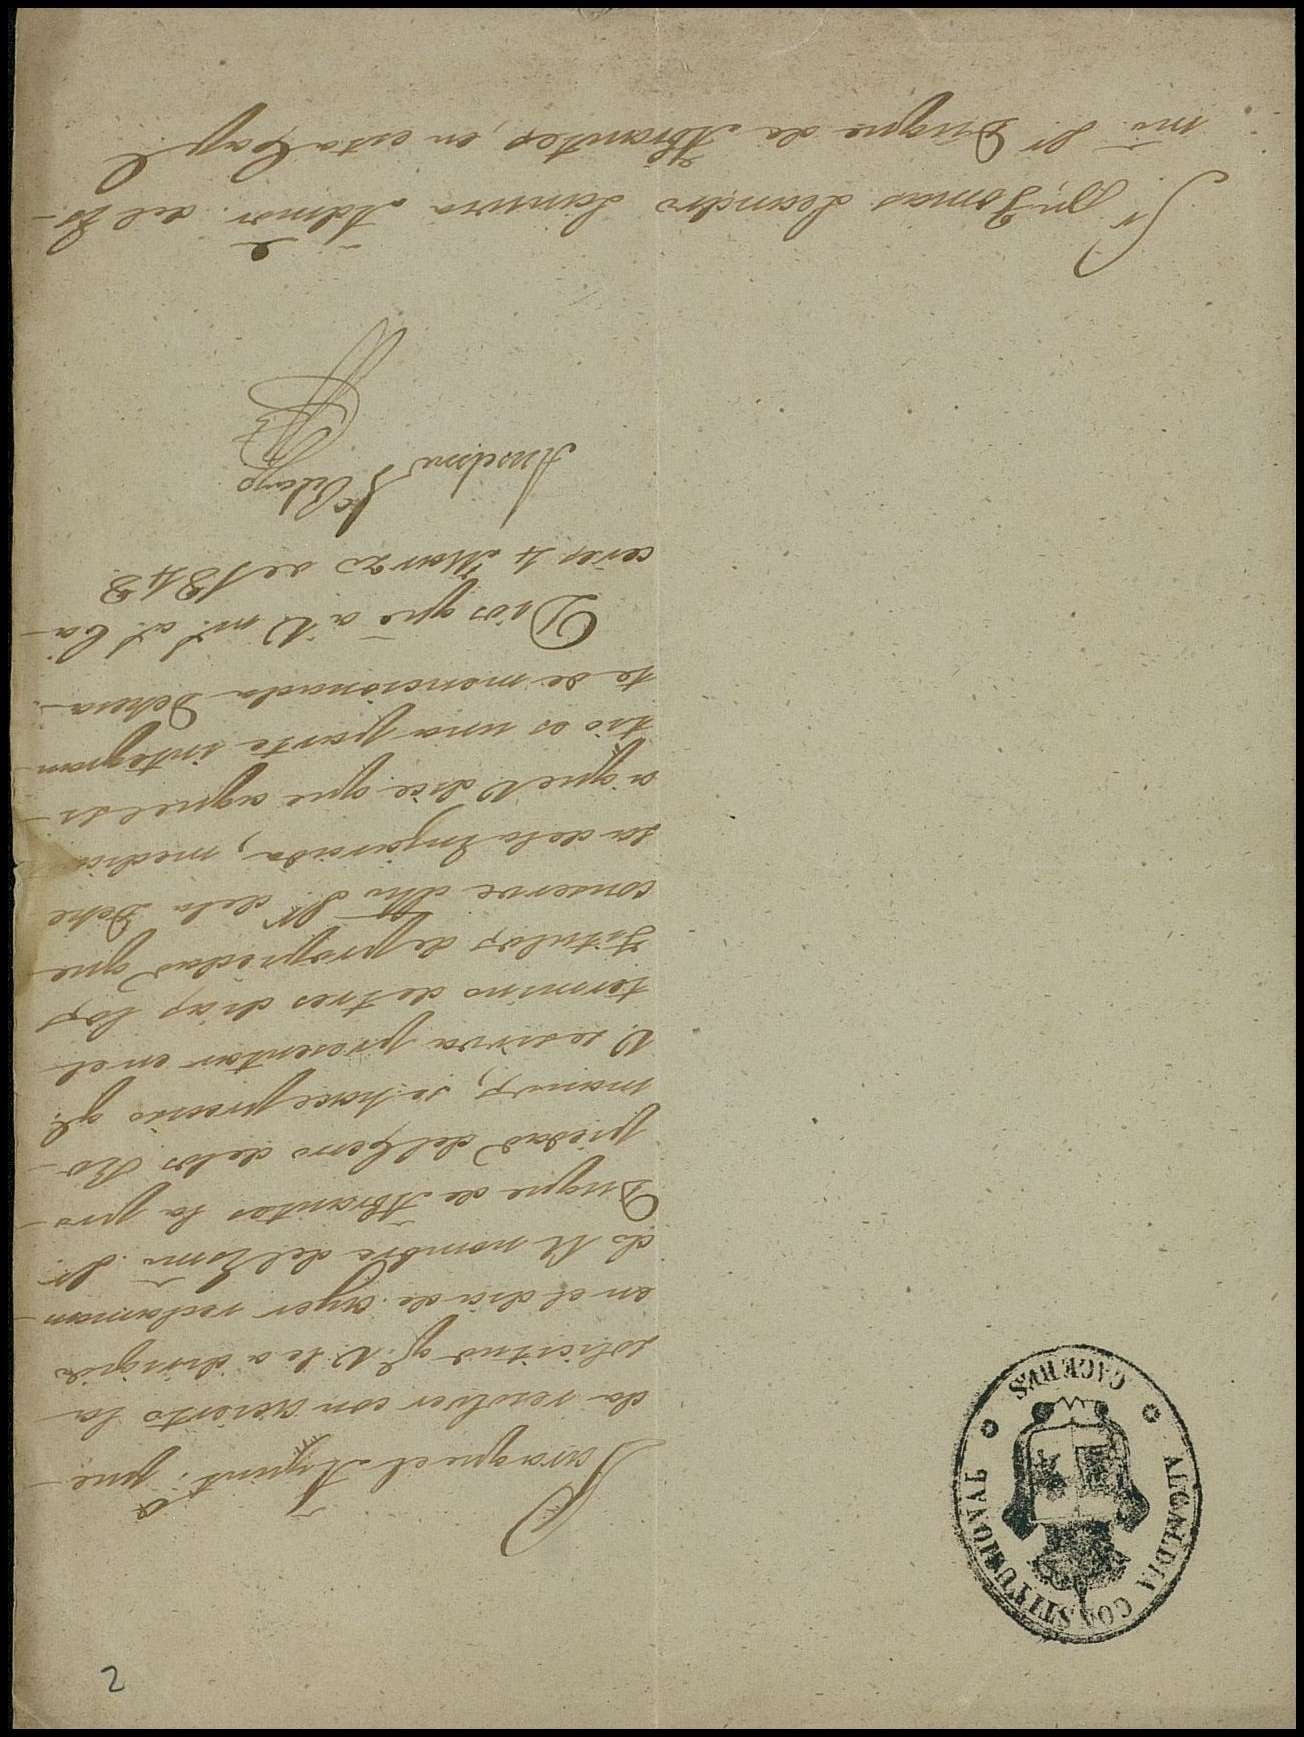 ALCALDIA CONSTITUCIONAL
CACERES
Para que el Ayunt.º pue-
da resolver con acierto la
solicitud q.e V. le a dirigido
en el dia de ayer reclaman-
do á nombre del Exmo. Sr.
Duque de Abrantes la pro-
piedad del Cerro de los Ro-
manos, se hace preciso q.e
V. se sirva presentar en el
termino de tres dias los
titulos de propiedad que
conserve dho Sr. de la Dehe
sa de la Enjarada, media
a que V. dice que aquel si-
tio es una parte integran
te de mencionada Dehesa.
Dios gue á V. m.s a.s Cá-
ceres 4 Marzo de 1843.
Anselmo
Sr. Dn. Tomas Leandro Admor. del Es-
mō. Sr. Duque de Abrantes, en esta Cap.l
2